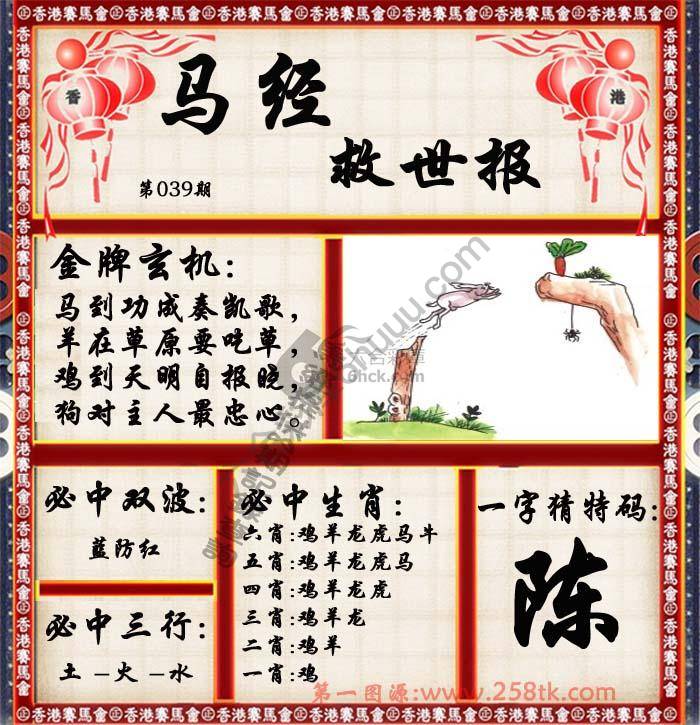 香港賽馬會㊣香港賽馬會㊣香港賽馬會
香 港
马经
救世报
第039期
金牌玄机:
马到功成奏凯歌,
羊在草原要吃草,
鸡到天明自报晓,
狗对主人最忠心。
必中双波:
蓝防红
必中三行:
土–火–水
必中生肖:
六肖:鸡羊龙虎马牛
五肖:鸡羊龙虎马
四肖:鸡羊龙虎
三肖:鸡羊龙
二肖:鸡羊
一肖:鸡
一字猜特码:
陈
第一图源:www.258tk.com